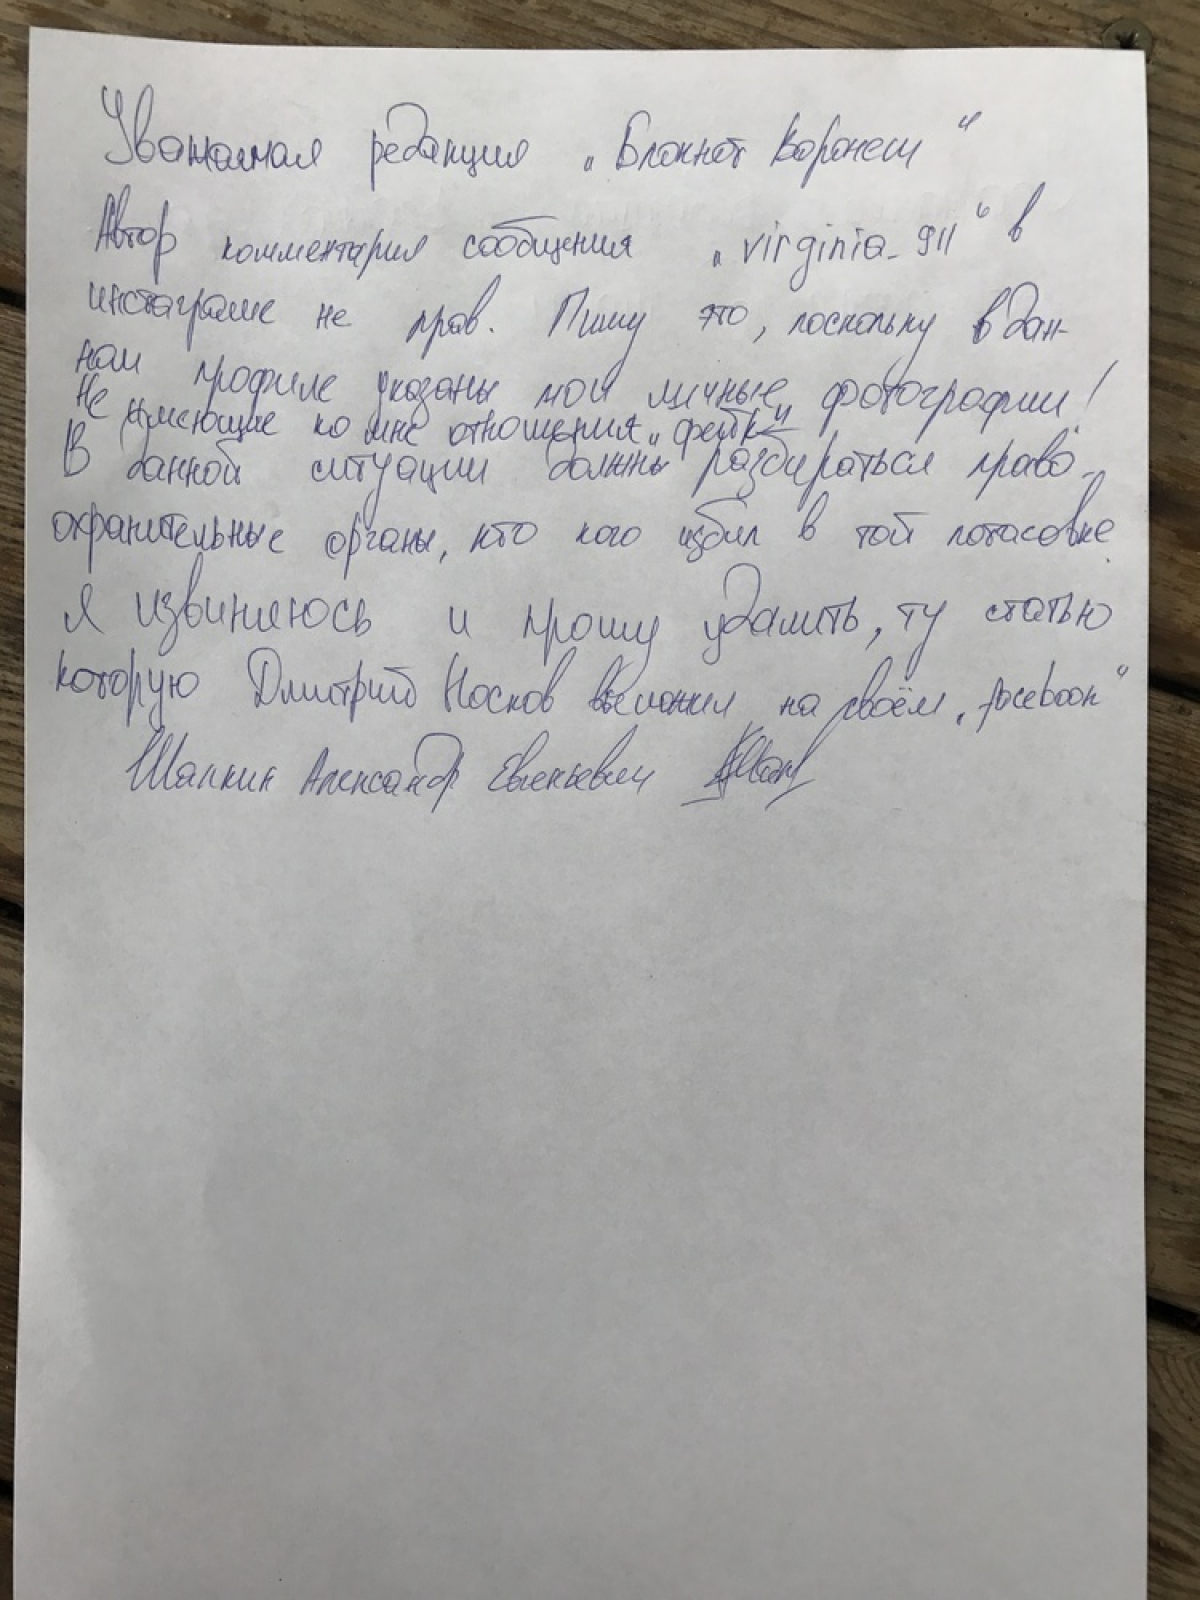 Уважаемая редакция „Блокнот Воронеж"
Автор комментария сообщения „virginia_911" в
инстаграме не прав. Пишу это, поскольку в дан-
ном профиле указаны мои личные фотографии!
Не имеющие ко мне отношения „фейк"
В данной ситуации должны разбираться право-
охранительные органы, кто кого избил в той потасовке.
Я извиняюсь и прошу удалить, ту статью
которую Дмитрий Носков выложил на своём „facebook"
Шапкин Александр Евгеньевич